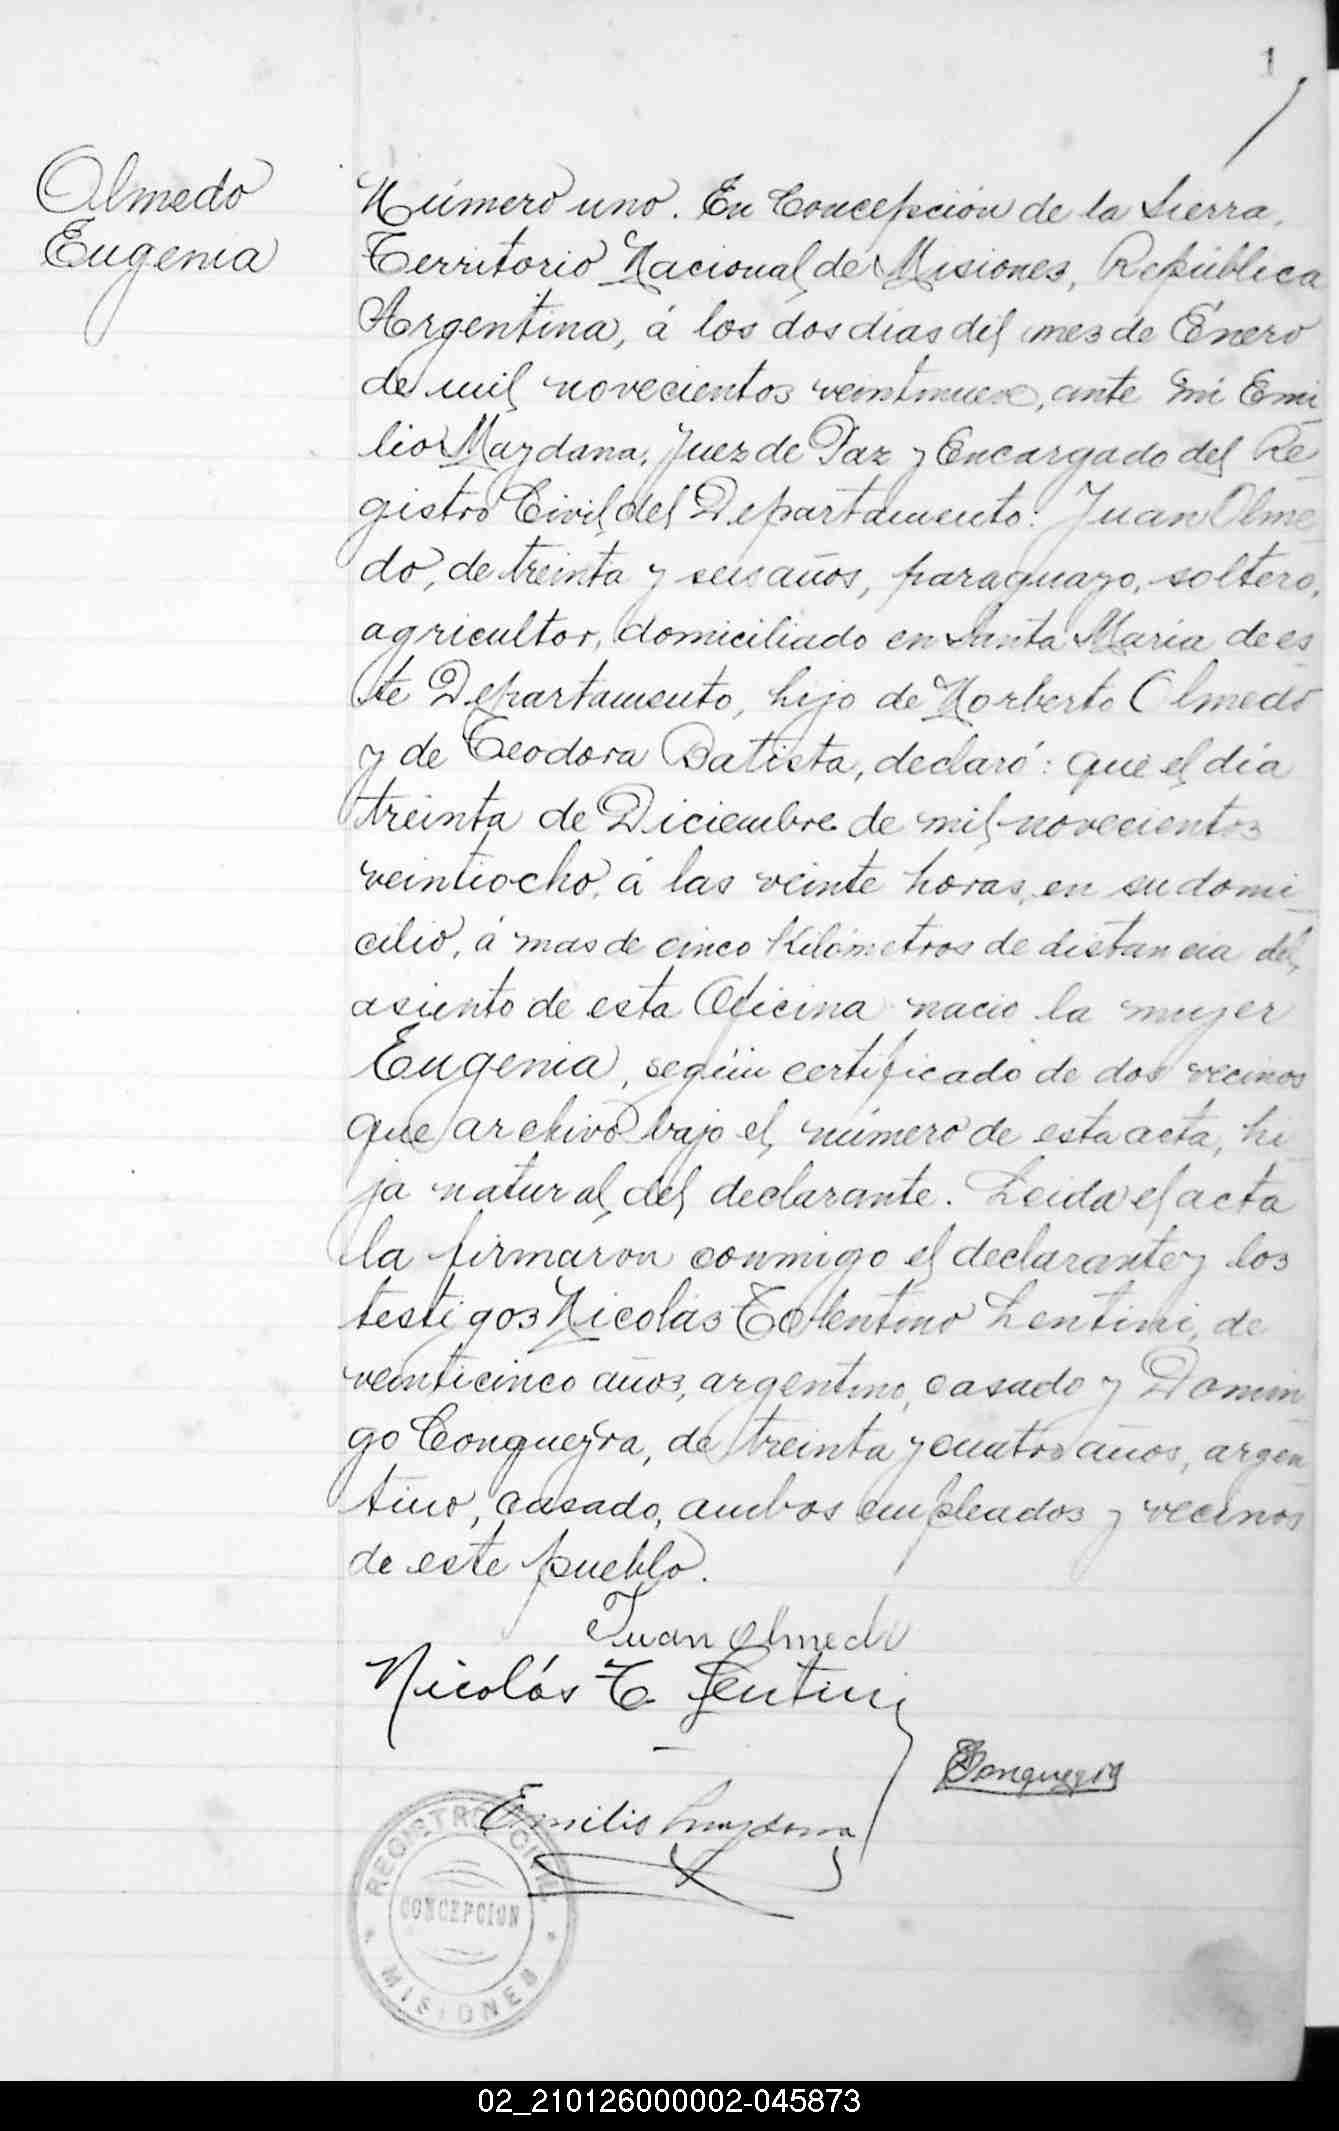 1
Olmedo
Eugenia
Número uno. En Concepción de la Sierra,
Territorio Nacional de Misiones, República
Argentina, á los dos dias del mes de Enero
de mil novecientos veintinueve, ante mi Emi
lio Maydana, Juez de Paz y Encargado del Re
gistro Civil del Departamento: Juan Olme
do, de treinta y seis años, paraguayo, soltero,
agricultor, domiciliado en Santa María de es
te Departamento, hijo de Norberto Olmedo
y de Teodora Batista, declaró: que el día
treinta de Diciembre de mil novecientos
veintiocho, á las veinte horas, en su domi
cilio, á mas de cinco kilómetros de distancia del
asiento de esta Oficina nacio la mujer
Eugenia, según certificado de dos vecinos
que archivo bajo el número de esta acta, hi
ja natural del declarante. Leida el acta
la firmaron conmigo el declarante y los
testigos Nicolás Tolentino Lentini, de
veinticinco años, argentino, casado y Domin
go Conqueyra, de treinta y cuatro años, argen
tino, casado, ambos empleados y vecinos
de este pueblo.
Juan Olmedo
Nicolás T. Lentini
Conqueyra
Emilio Maydana
REGISTRO CIVIL
CONCEPCION
MISIONES
02_210126000002-045873